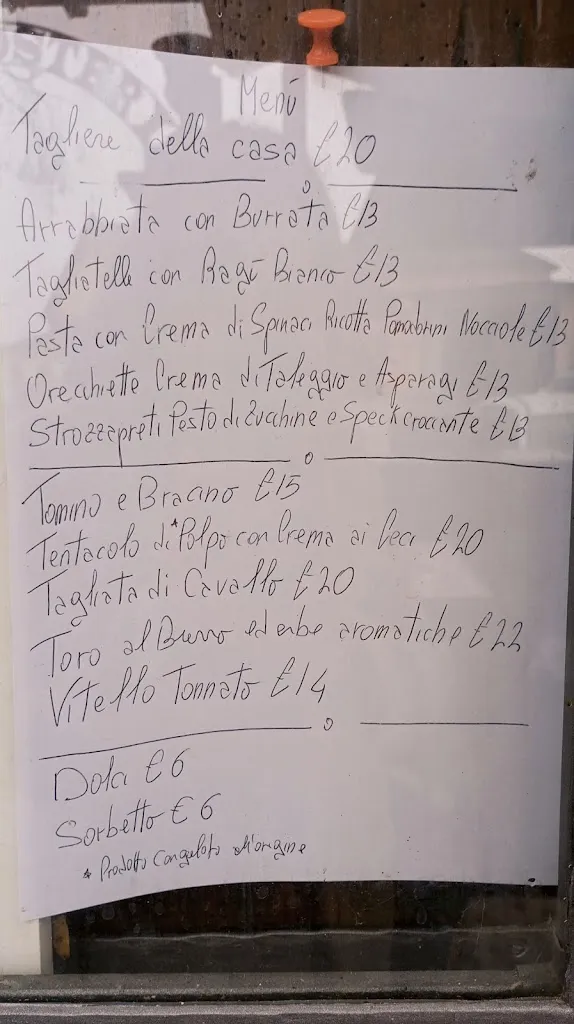 Menú
Tagliere della casa €20
Arrabbiata con Burrata €13
Tagliatelle con Ragù Bianco €13
Pasta con Crema di Spinaci Ricotta Pomodorini Nocciole €13
Orecchiette Crema di Taleggio e Asparagi €13
Strozzapreti Pesto di Zucchine e Speck croccante €13
Tomino e Bracino €15
Tentacolo di *Polpo con Crema ai Ceci €20
Tagliata di Cavallo €20
Toro al Burro ed erbe aromatiche €22
Vitello Tonnato €14
Dolci €6
Sorbetto €6
* Prodotto Congelato all'origine